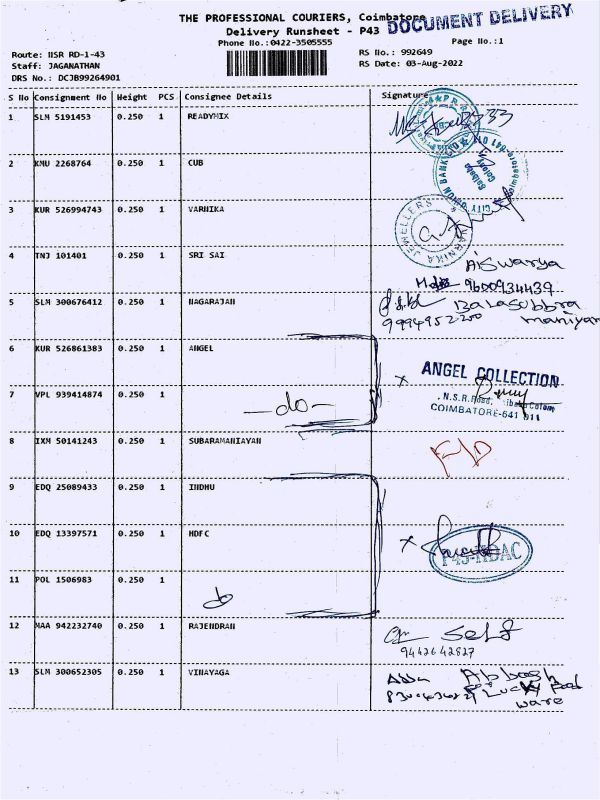 THE PROFESSIONAL COURIERS, Coimbatore
DOCUMENT DELIVERY
Delivery Runsheet - P43
Phone No.:0422-3505555
Page No.:1
Route: NSR RD-1-43
RS No.: 992649
Staff: JAGANATHAN
RS Date: 03-Aug-2022
DRS No.: DCJB99264901
S No Consignment No Weight PCS Consignee Details Signature
1 SLM 5191453 0.250 1 READYMIX
2 KMU 2268764 0.250 1 CUB
CITY UNION BANK
Saibaba Colony
3 KUR 526994743 0.250 1 VARNIKA
VARNIKA JEWELLERS
4 TNJ 101401 0.250 1 SRI SAI
Aiswarya
9600934439
5 SLM 300676412 0.250 1 NAGARAJAN
Balasubbra
maniyan
9994952200
6 KUR 526861383 0.250 1 ANGEL
ANGEL COLLECTION
N.S.R. Road, Colony
COIMBATORE-641 011
7 VPL 939414874 0.250 1
-do-
8 IXM 50141243 0.250 1 SUBARAMANIAYAN
F/D
9 EDQ 25089433 0.250 1 INDHU
10 EDQ 13397571 0.250 1 HDFC
11 POL 1506983 0.250 1
do
12 MAA 942232740 0.250 1 RAJENDRAN
self
9442642827
13 SLM 300652305 0.250 1 VINAYAGA
Abbash
Lucky Food
ware